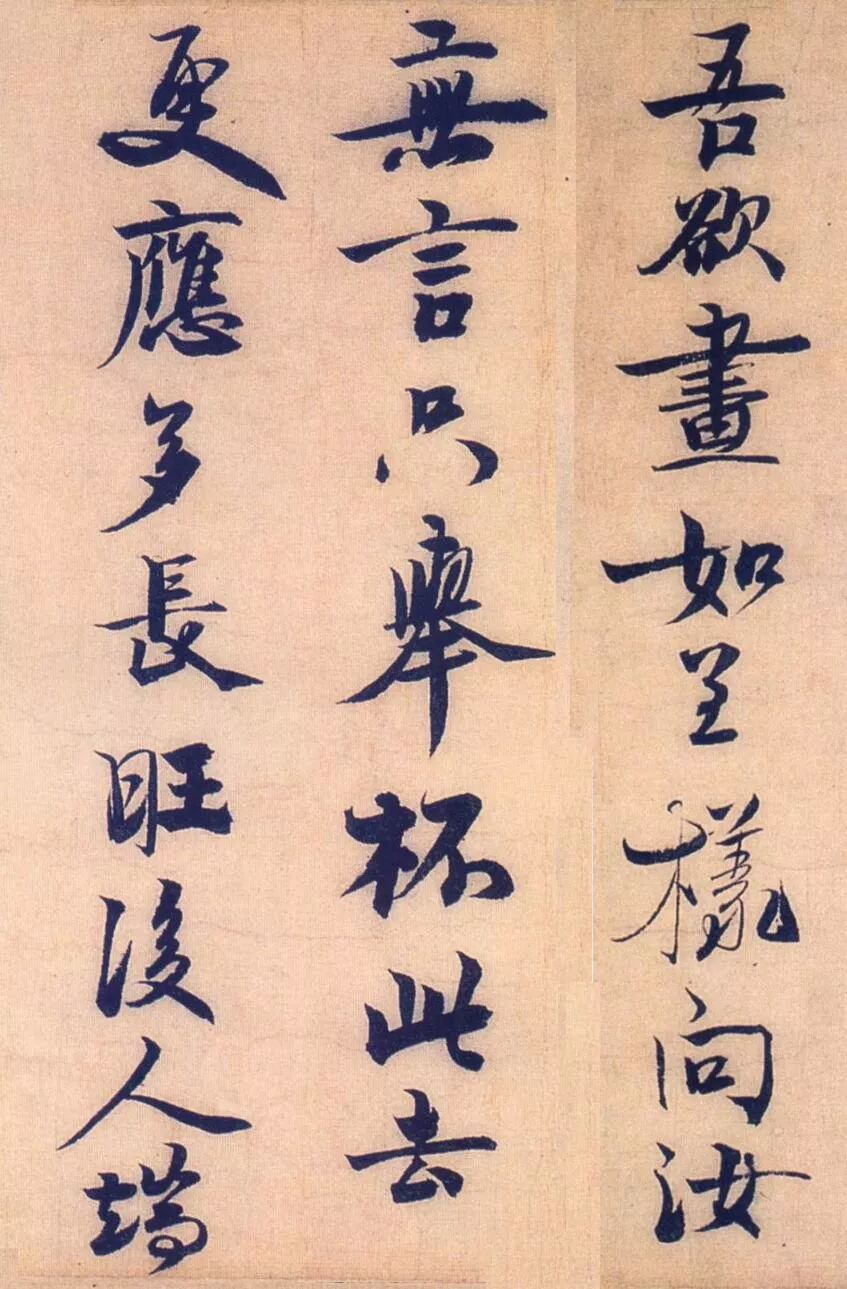 吾欲畫如呈樣向汝
無言只舉杯此去
更應多長旺後人端